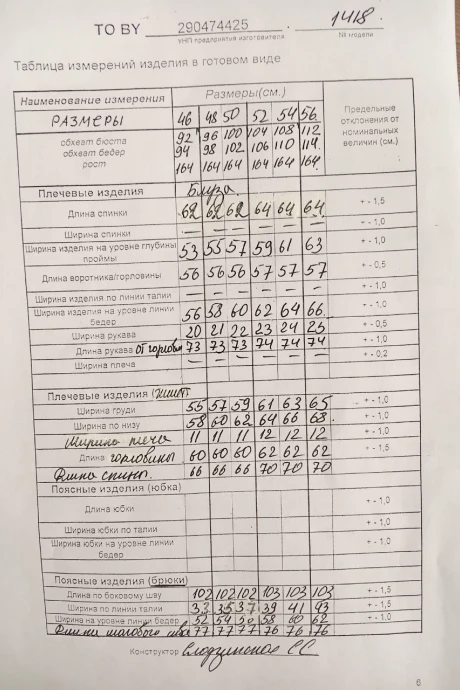 TO BY 290474425 1418.
УНП предприятия изготовителя № модели
Таблица измерений изделия в готовом виде
Наименование измерения Размеры(см.) Предельные отклонения от номинальных величин (см.)
РАЗМЕРЫ 46 48 50 52 54 56
обхват бюста 92 96 100 104 108 112
обхват бедер 94 98 102 106 110 114
рост 164 164 164 164 164 164
Плечевые изделия Блуза.
Длина спинки 62 62 62 64 64 64 + - 1,5
Ширина спинки – – – – – – + - 1,0
Ширина изделия на уровне глубины проймы 53 55 57 59 61 63 + - 1,0
Длина воротника/горловины 56 56 56 57 57 57 + - 0,5
Ширина изделия по линии талии – – – – – – + - 1,0
Ширина изделия на уровне линии бедер 56 58 60 62 64 66 + - 1,0
Ширина рукава 20 21 22 23 24 25 + - 0,5
Длина рукава от горлови 73 73 73 74 74 74 + - 1,0
Ширина плеча – – – – – – + - 0,2
Плечевые изделия (жилет
Ширина груди 55 57 59 61 63 65 + - 1,0
Ширина по низу 58 60 62 64 66 68 + - 1,0
Ширина плеча 11 11 11 12 12 12 + - 1,0
Длина горловины 60 60 60 62 62 62 + - 1,5
Длина спин. 66 66 66 70 70 70
Поясные изделия (юбка)
Длина юбки + - 1,0
Ширина юбки по талии + - 1,0
Ширина юбки на уровне линии бедер + - 1,0
Поясные изделия (брюки)
Длина по боковому шву 102 102 102 103 103 103 + - 1,5
Ширина по линии талии 33 35 37 39 41 + - 1,0
Ширина на уровне линии бедер 52 54 58 60 62 + - 1,0
Длина шагового шва 77 77 77 76 76 76
Конструктор
6